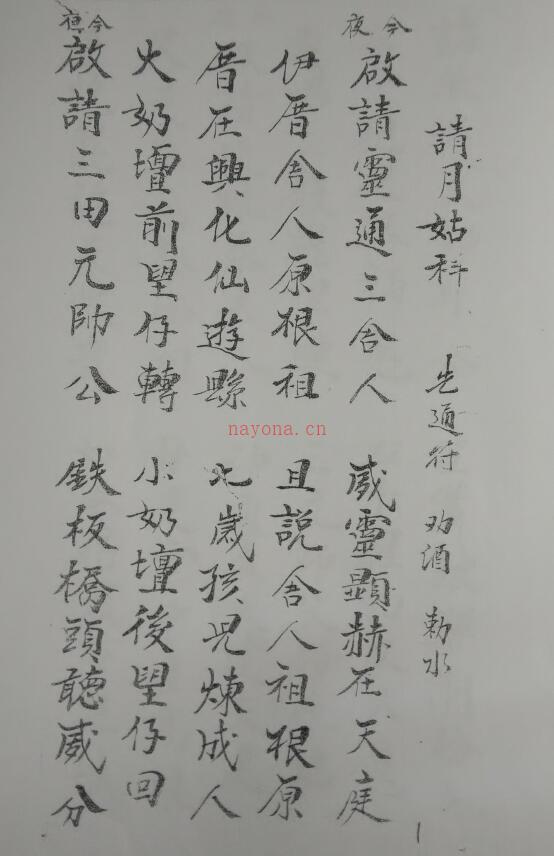 請月姑科 先通符 劝酒 勅水
今夜
啟請靈通三舍人 威靈顯赫在天庭
伊厝舍人原根祖 且說舍人祖根原
厝在興化仙遊縣 七歲孩兒煉成人
火奶壇前望仔轉 小奶壇後望仔回
今夜
啟請三田元帥公 鉄板橋頭聽威分
1
nayona.cn